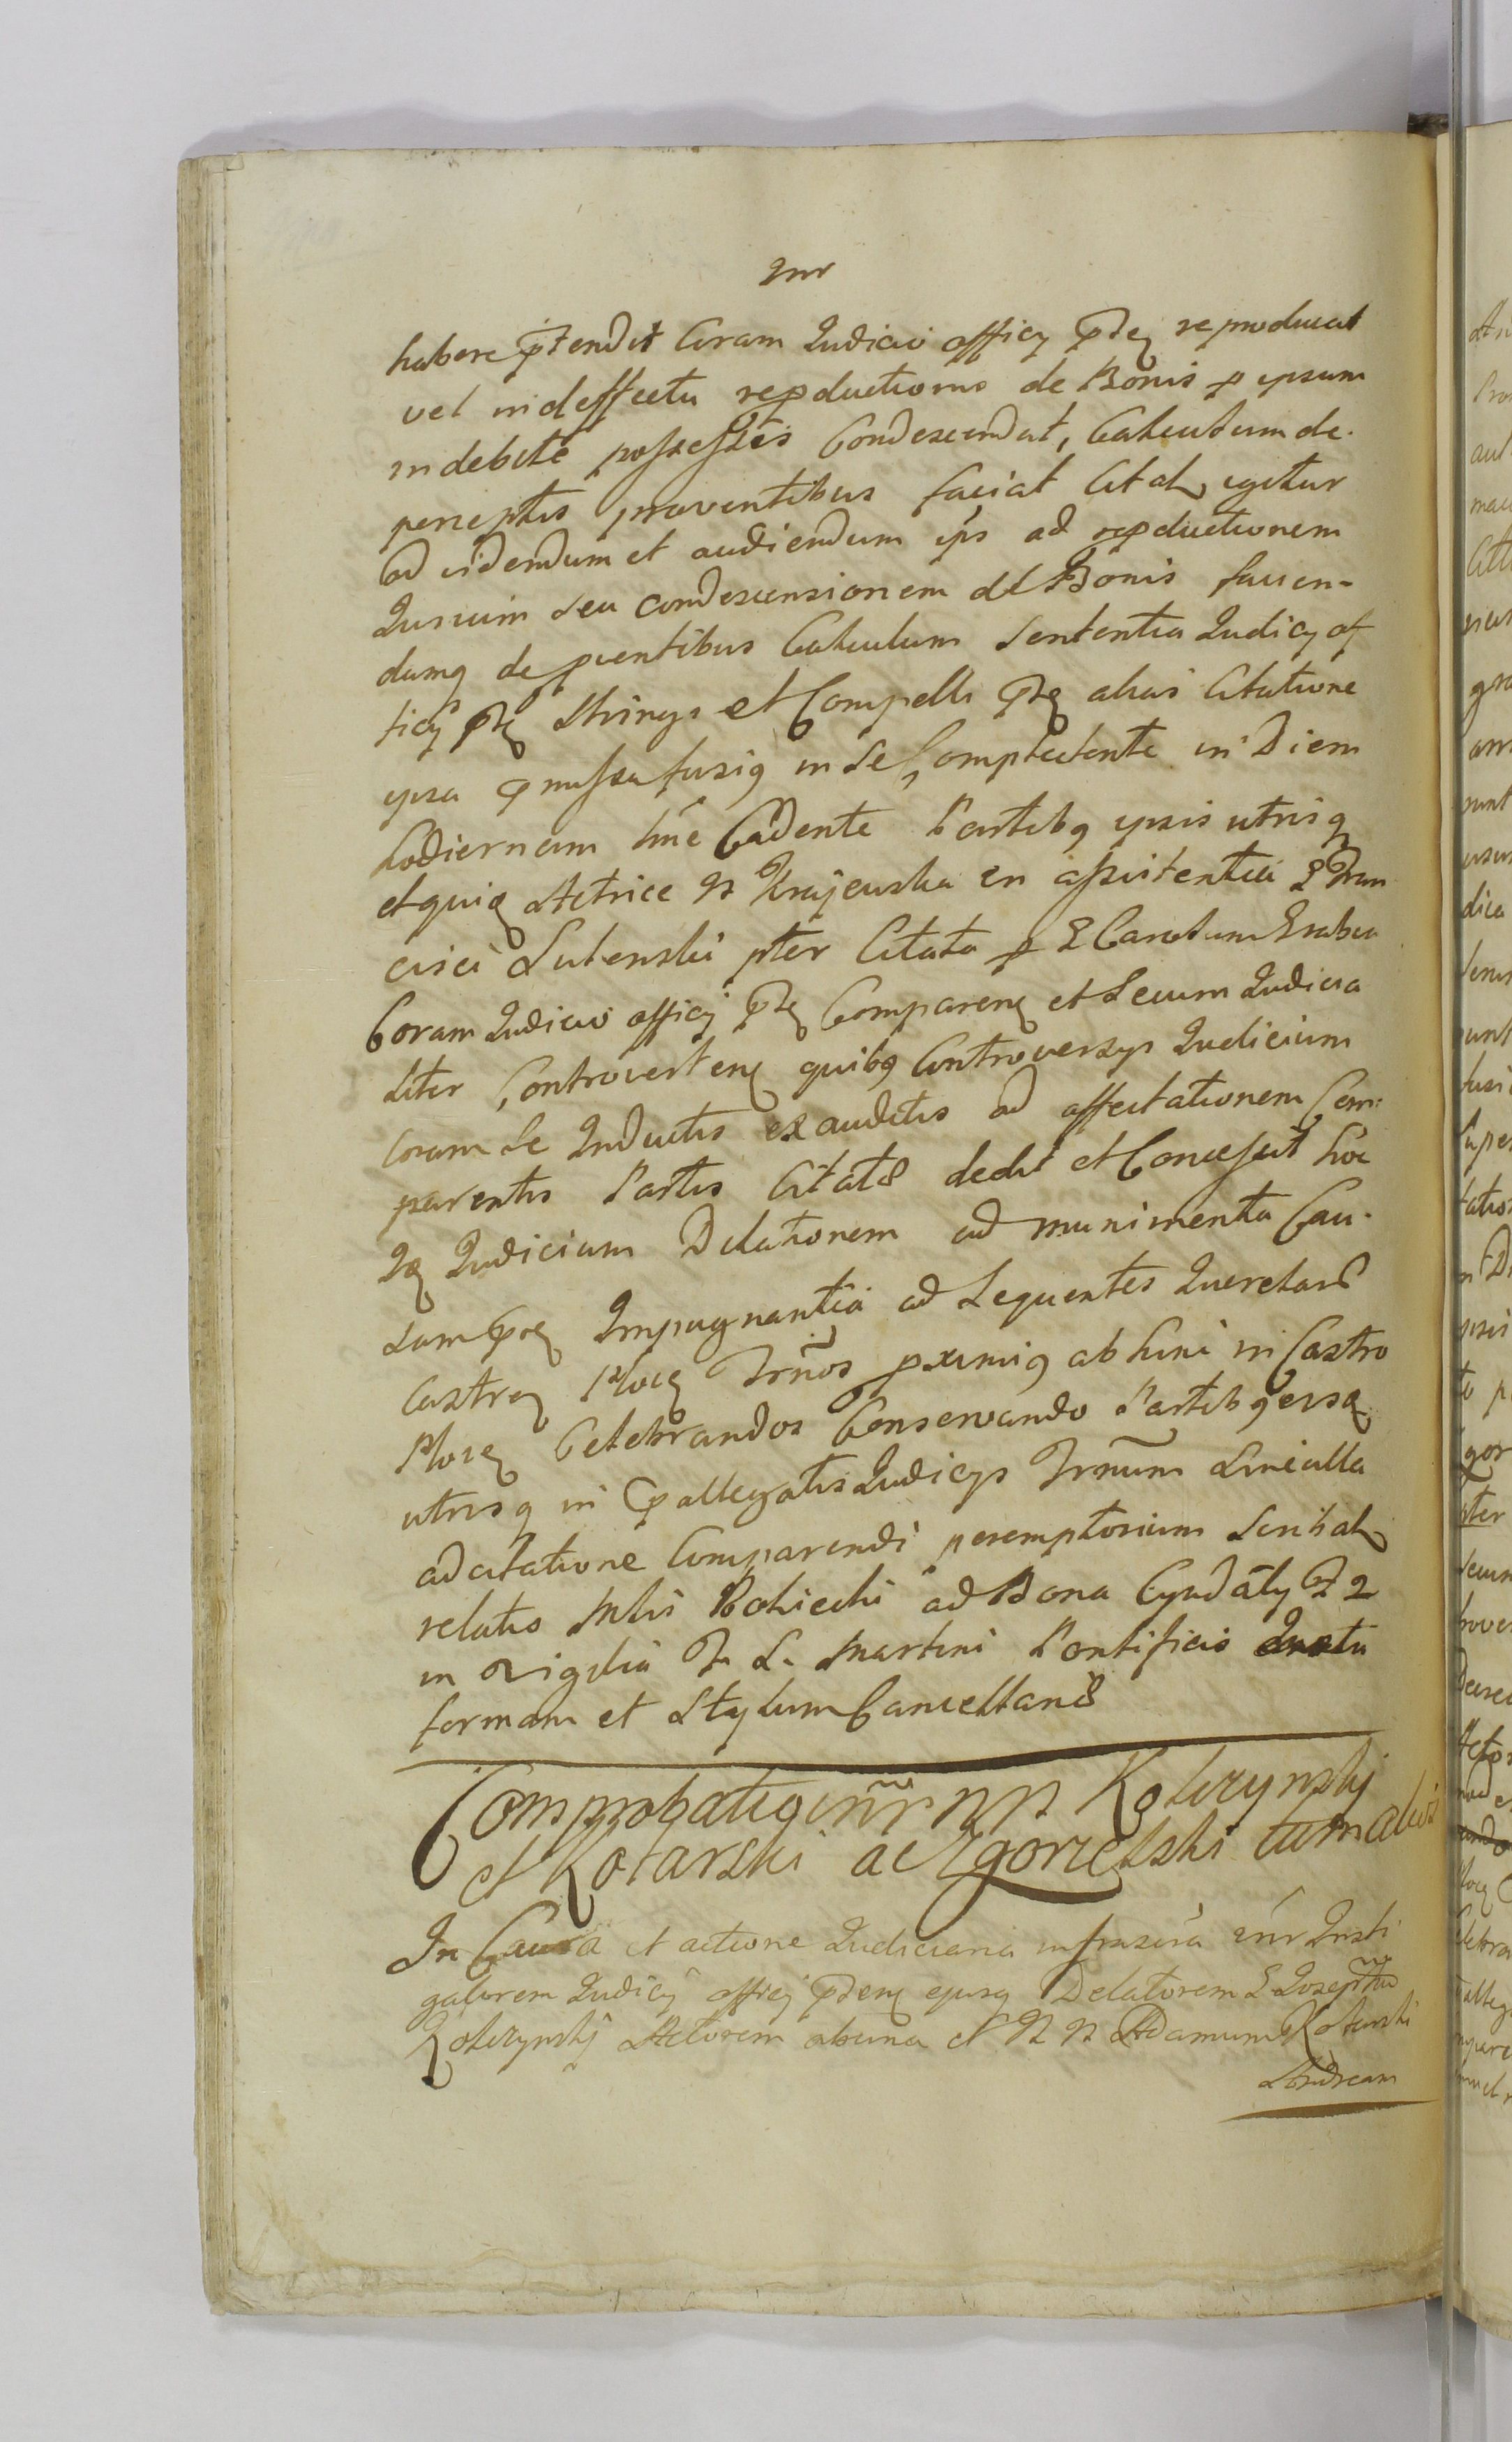 habere ptendit Coram Judicio officy pte reproducat
vel in deffectu repductionis de Bonis p ipsum
indebite possessis Condescendat, Calculum de
perceptis proventibus faciat Citat igitur
ad videndum et audiendum ips ad repductionem
Jurium seu condescensionem de Bonis facien-
damq de puentibus Calculum Sententia Judicy of
ficy pte Stringi et Compelli pte alias Citatione
ipsa pmissa fusiq in se Complectente in Diem
hodiernam hne Cadente Partibq ipsis utrisq
et quiq Actrice N Krajewska in assistentia G Fran
cisci Lutenski pter Citata p G Carolum Grabia
Coram Judicio officy pte Comparen et secum Judicia
liter Controverten quibq Controversys Judicium
coram se Inductis exauditis ad affectationem Com:
parentis Partis Citatæ dedit et Concessit hoc
Iq Judicium Dilationem ad munimenta Cau-
sam pte Impugnantia ad sequentes Querelarũ
Castren Ploce Trños pximiq ab hinc in Castro
Ploce Celebrandos Conservando Partibq ersq
utrisq in pallegatis Judicys Trnum sine ulla
adcitatione Comparendi peremptorium Scribat
relatio Mlis Rokicki ad Bona
in Vigilia F. S. Martini Pontificis Juxta
formam et Stylum Cancellariæ
Comprobatiq inr NN Kobrzynskj
et Kotarski ac Zgorzelski tum alios
In Causa et actione Judiciaria infrascra inr Insti
gatorem Judicy officy pten ejusq Delatorem G Josephũ
Kobrzynskj Actorem ab una et N N Adamum Kotarski
Andream